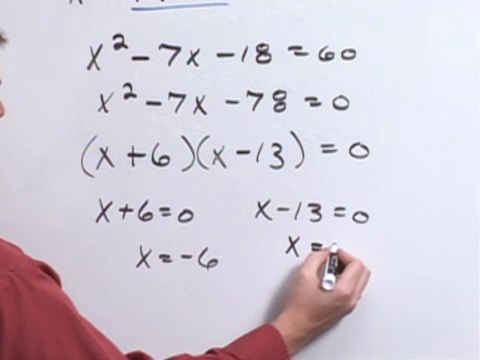 x² - 7x - 18 = 60
x² - 7x - 78 = 0
(x + 6)(x - 13) = 0
x + 6 = 0 x - 13 = 0
x = -6 x =